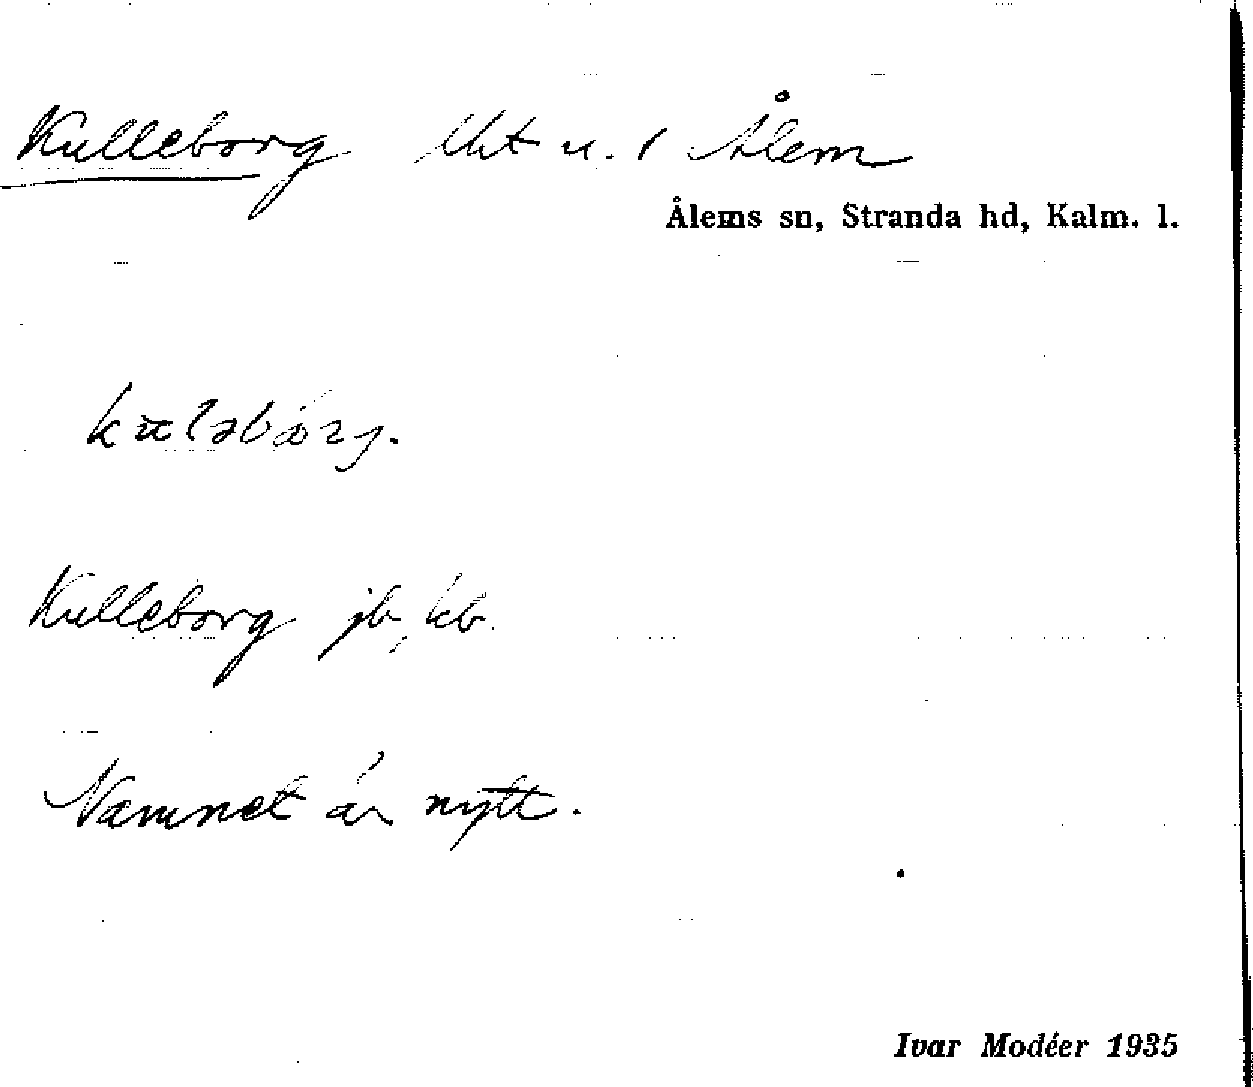 Kulleborg lht u. 1 Ålem
Ålems sn, Stranda hd, Kalm. l.
Kulleborg jb, kb.
Namnet är nytt.
Ivar Modéer 1935